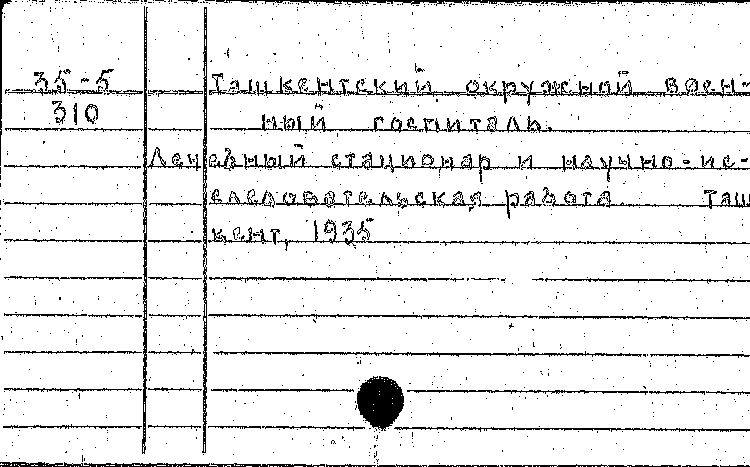 35-5 Ташкентский окружной воен-
310 ный госпиталь.
Лечебный стационар и научно-ис-
следовательская работа. Таш
кент, 1935